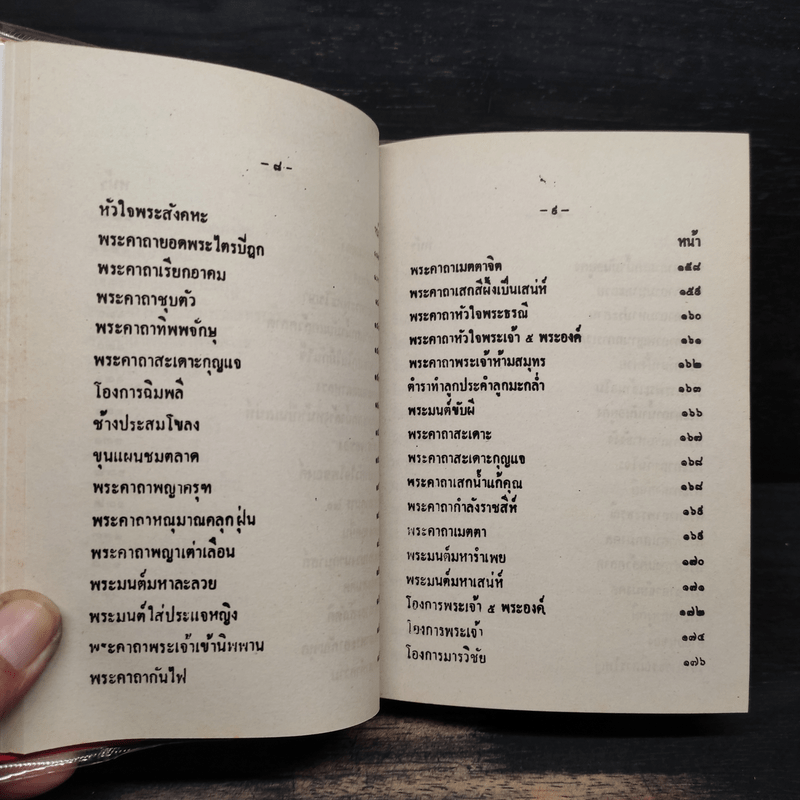 – ๘ –
หัวใจพระสังคหะ
พระคาถายอดพระไตรปีฎก
พระคาถาเรียกอาคม
พระคาถาชุบตัว
พระคาถาทิพพจักษุ
พระคาถาสะเดาะกุญแจ
โองการฉิมพลี
ช้างประสมโขลง
ขุนแผนชมตลาด
พระคาถาพญาครุฑ
พระคาถาหณุมาณคลุกฝุ่น
พระคาถาพญาเต่าเลือน
พระมนต์มหาละลวย
พระมนต์ใส่ประแจหญิง
พระคาถาพระเจ้าเข้านิพพาน
พระคาถากันไฟ
– ๙ –
หน้า
พระคาถาเมตตาจิต ๑๕๘
พระคาถาเสกสีผึ้งเป็นเสน่ห์ ๑๕๙
พระคาถาหัวใจพระธรณี ๑๖๐
พระคาถาหัวใจพระเจ้า ๕ พระองค์ ๑๖๑
พระคาถาพระเจ้าห้ามสมุทร ๑๖๒
ตำราทำลูกประคำลูกมะกล่ำ ๑๖๓
พระมนต์ขับผี ๑๖๖
พระคาถาสะเดาะ ๑๖๗
พระคาถาสะเดาะกุญแจ ๑๖๘
พระคาถาเสกน้ำแก้คุณ ๑๖๘
พระคาถากำลังราชสีห์ ๑๖๙
พระคาถาเมตตา ๑๖๙
พระมนต์มหารำเพย ๑๗๐
พระมนต์มหาเสน่ห์ ๑๗๑
โองการพระเจ้า ๕ พระองค์ ๑๗๒
โองการพระเจ้า ๑๗๔
โองการมารวิชัย ๑๗๖